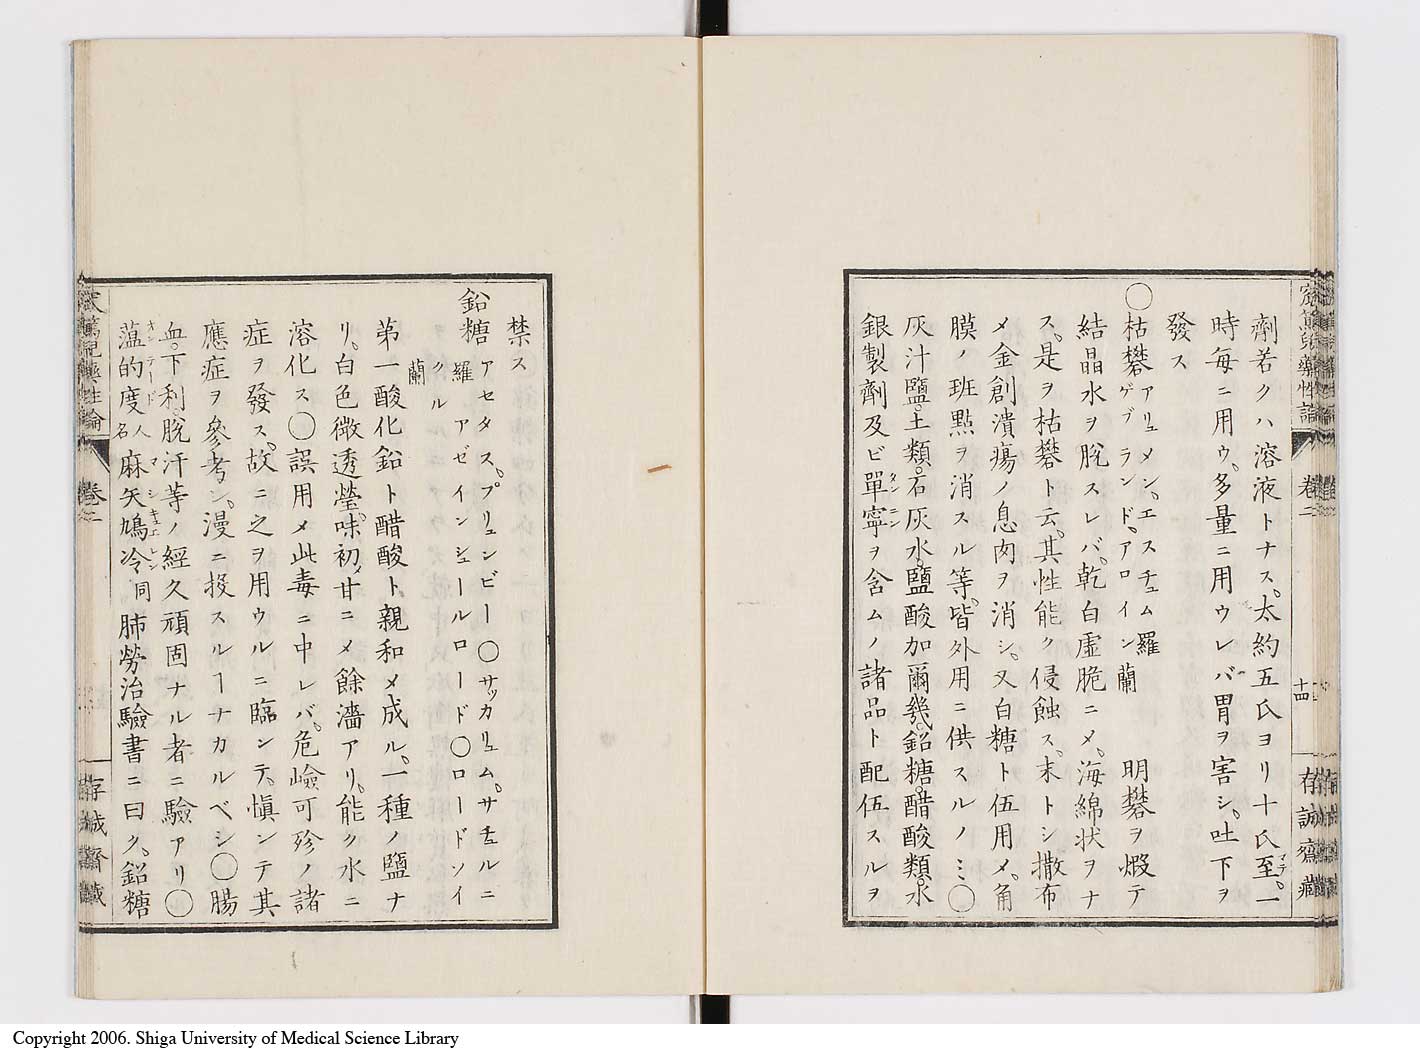 劑若クハ溶液トナス。太約五氏ヨリ十氏至マテ。一
時每ニ用ウ。多量ニ用ウレバ胃ヲ害シ。吐下ヲ
發ス
〇枯礬 アリュメン。エスチュム 羅 ゲブランド。アロイン 蘭 明礬ヲ煅テ
結晶水ヲ脫スレバ。乾白虛脆ニメ。海綿狀ヲナ
ス。是ヲ枯礬ト云。其性能ク侵蝕ス。末トシ撒布
メ金創潰瘍ノ息肉ヲ消シ。又白糖ト伍用メ。角
膜ノ斑點ヲ消スル等。皆外用ニ供スルノミ〇
灰汁鹽。土類。石灰水。鹽酸加爾幾。鉛糖。醋酸類。水
銀製劑及ビ單寧タンニンヲ含ムノ諸品ト配伍スルヲ
卷二
十四
存誠齋藏
禁ス
鉛糖 アセタス。プリュンビー〇サッカリュム。サチュルニ 羅 アゼインシュールロード〇ロードソイクル 蘭
第一酸化鉛ト醋酸ト親和メ成ル。一種ノ鹽ナ
リ。白色微透瑩。味初メ甘ニメ餘濇アリ。能ク水ニ
溶化ス〇誤用メ此毒ニ中レバ。危嶮可殄ノ諸
症ヲ發ス。故ニ之ヲ用ウルニ臨ンテ。愼ンテ其
應症ヲ參考シ。漫ニ投スルーナカルベシ〇腸
血。下利。脫汗等ノ經久頑固ナル者ニ驗アリ〇
薀的度オンテード人名麻矢鳩冷マシキュエレン同肺勞治驗書ニ曰ク。鉛糖
卷二
存誠齋藏
Copyright 2006. Shiga University of Medical Science Library